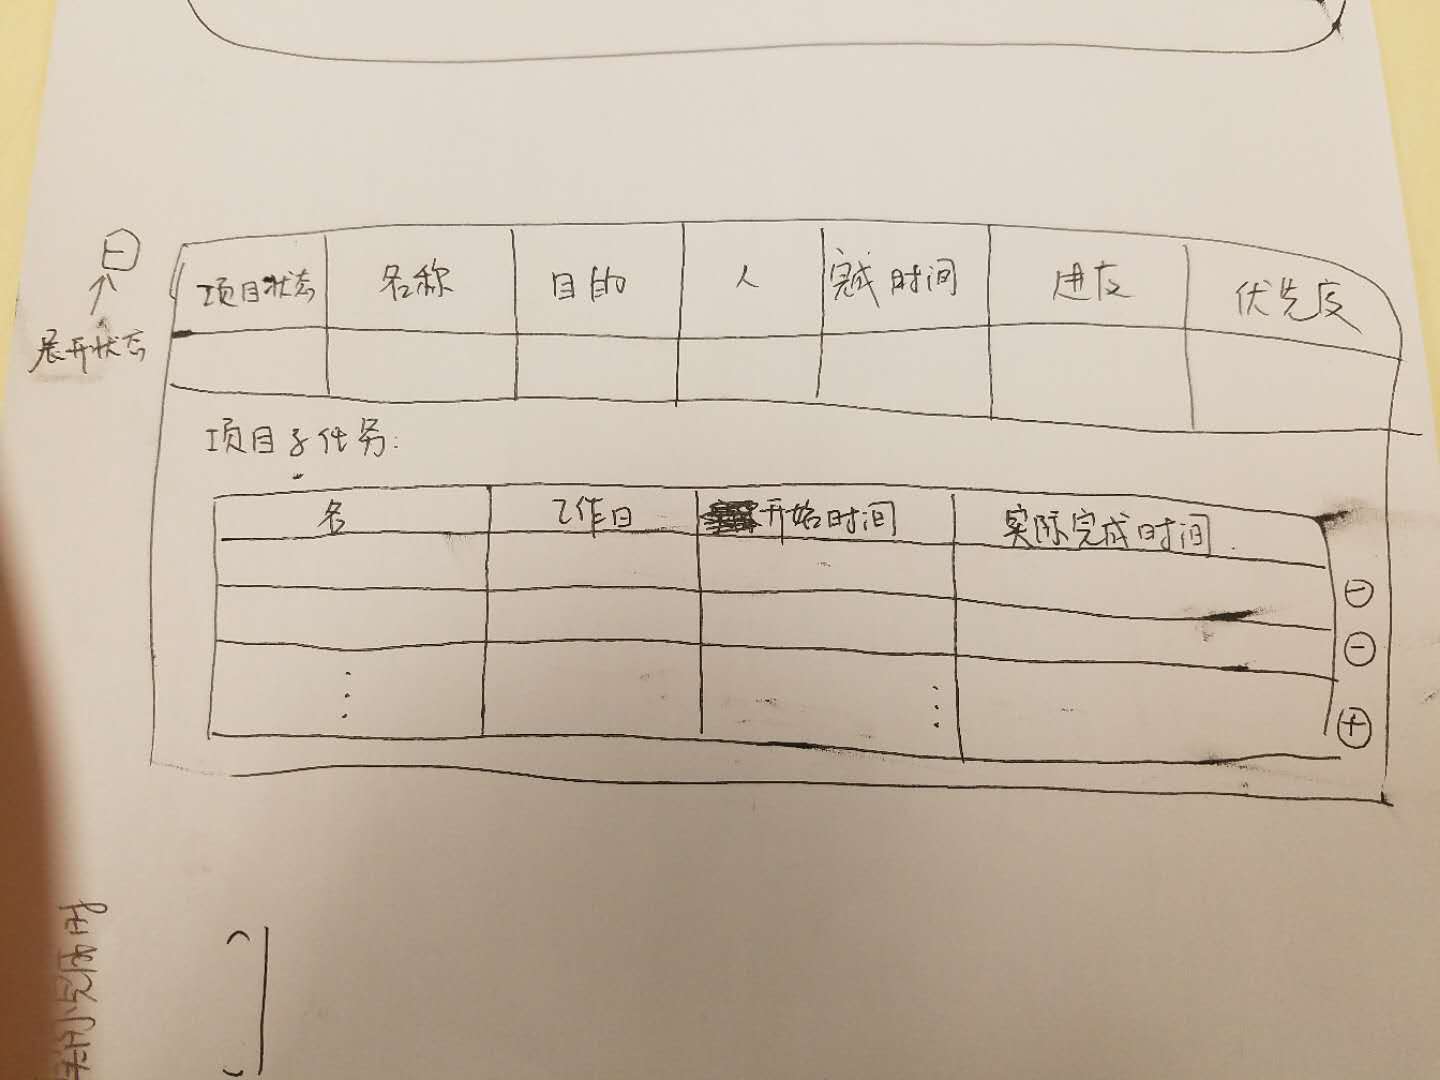 项目状态 名称 目的 人 完成时间 进度 优先度
展开状态
项目子任务:
名 工作日 开始时间 实际完成时间